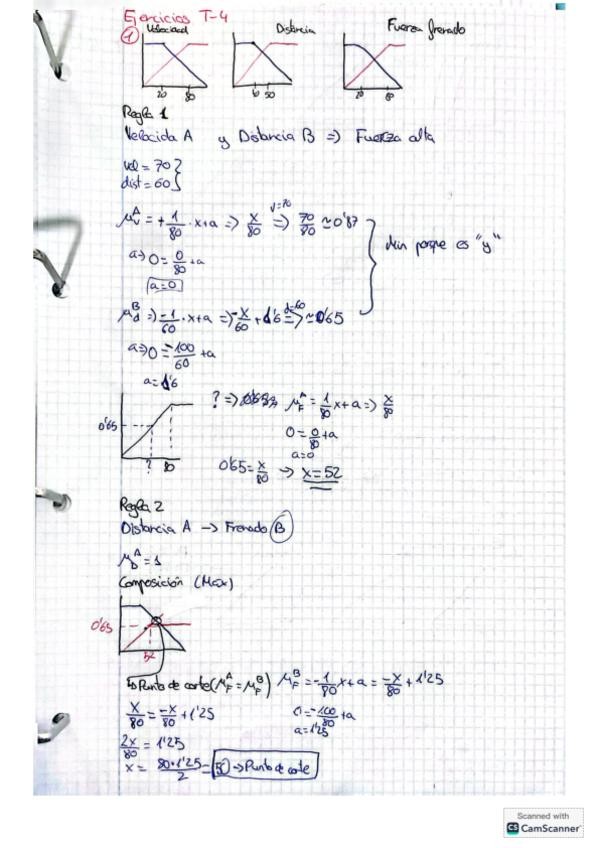 Ejercicios T-4
1 Velocidad Distancia Fuerza frenado
20 80 40 50 20 80
Regla 1
Velocida A y Distancia B => Fuerza alta
vel = 70
dist = 60
μ_V^A = +1/80 · x+a => x/80 =>(v=70) 70/80 ≈ 0'87
a=> 0 = 0/80 + a
a=0
Min porque es "y"
μ_d^B => -1/60 · x+a => -x/60 + 1'6 =>(d=60) ≈ 0'65
a=> 0 = -100/60 + a
a = 1'6
? => μ_F^A = 1/80 x+a => x/80
0'65
0 = 0/80 + a
a=0
? 80
0'65 = x/80 -> x = 52
Regla 2
Distancia A -> Frenado B
μ_D^A = 1
Composición (Max)
0'65
52
Punto de corte (μ_F^A = μ_F^B) μ_F^B = -1/80 x+a = -x/80 + 1'25
x/80 = -x/80 + 1'25 0 = -100/80 + a
a = 1'25
2x/80 = 1'25
x = 80·1'25/2 = 50 -> Punto de corte
Scanned with
CS CamScanner